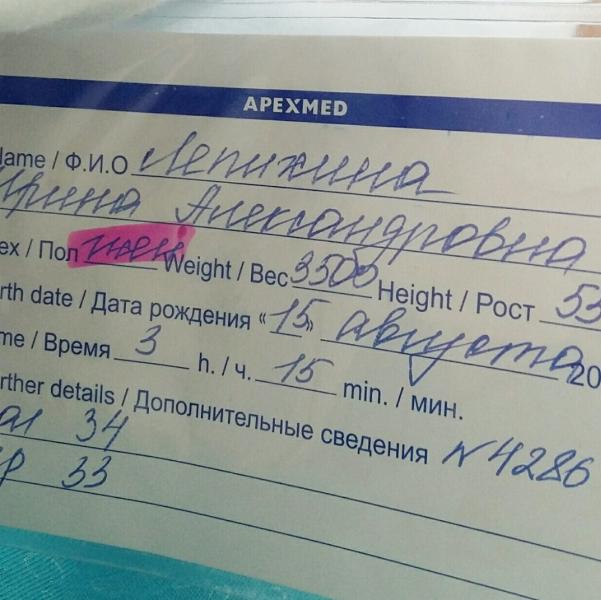 APEXMED
Name / Ф.И.О Лепихина
Ирина Александровна
ex / Пол жен Weight / Вес 3500 Height / Рост 53
rth date / Дата рождения «15» августа 20
me / Время 3 h. / ч. 15 min. / мин.
rther details / Дополнительные сведения N4286
34
33